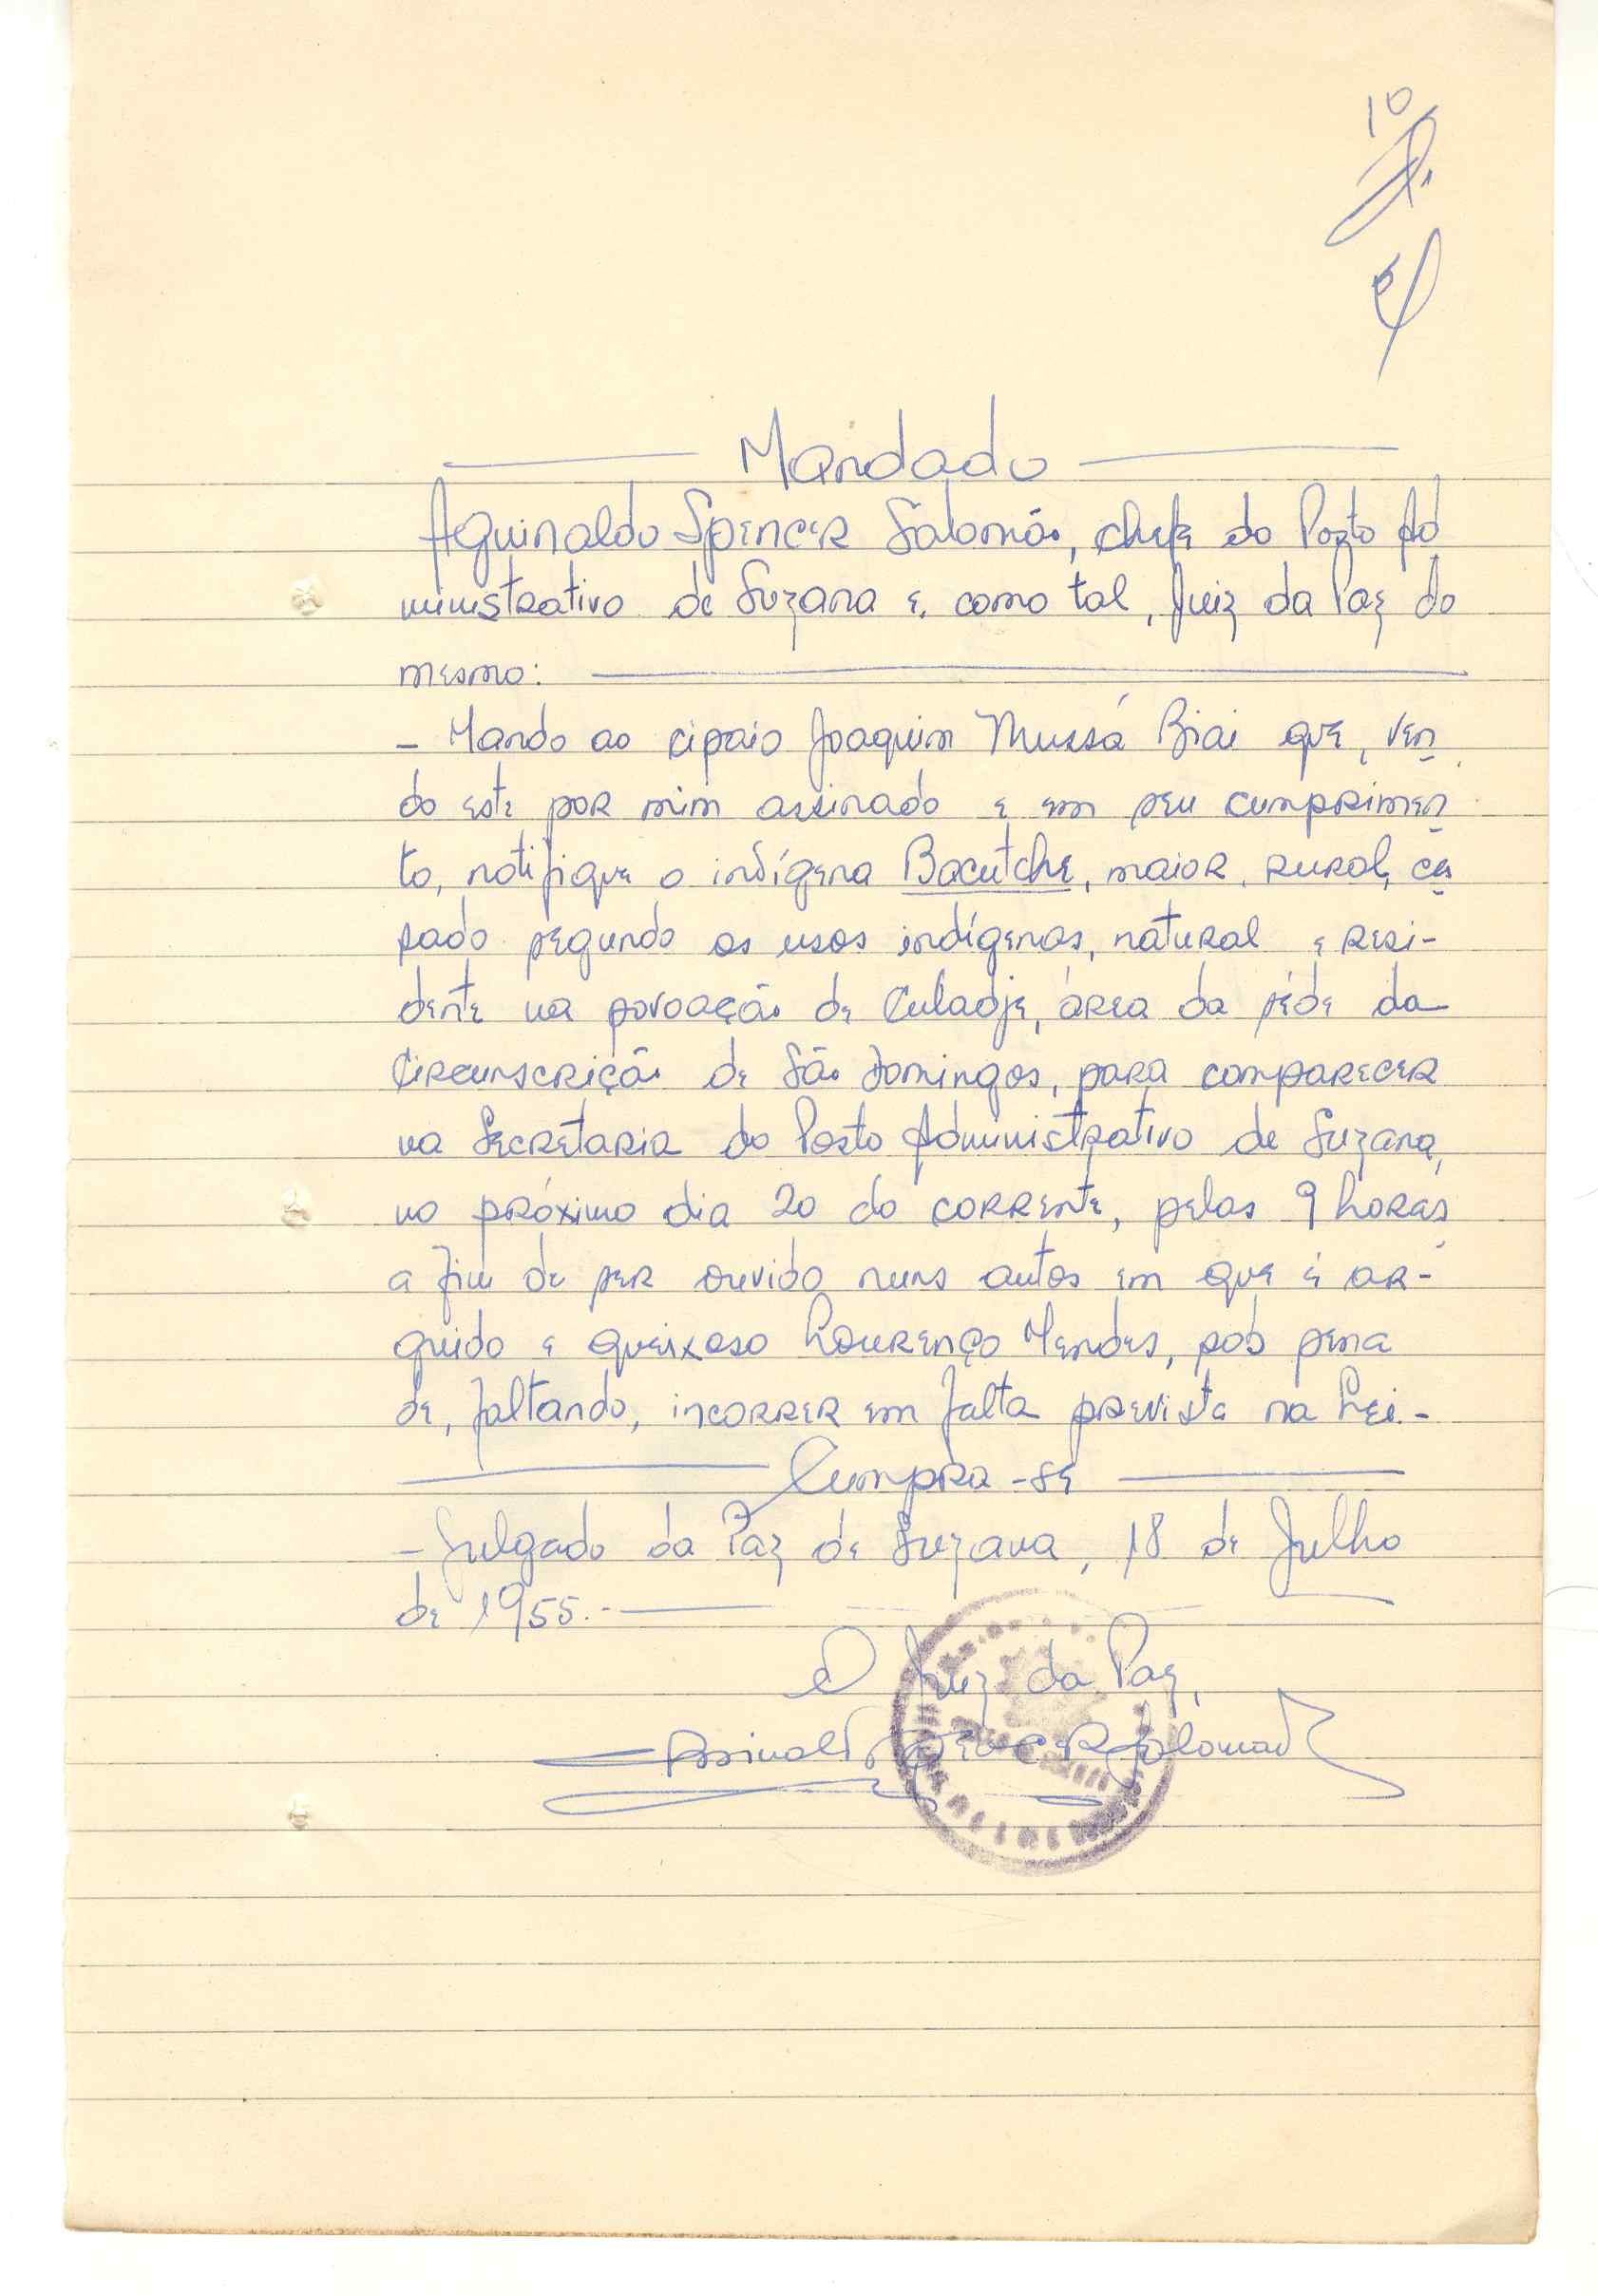 10
Mandado
Aguinaldo Spencer Salomão, chefe do Posto Ad
ministrativo de Suzana e, como tal, Juiz da Paz do
mesmo:
- Mando ao cipaio Joaquim Mussá Biai que, ven
do este por mim assinado e em seu cumprimen
to, notifique o indígena Bacutche, maior, rural, ca
sado segundo os usos indígenas, natural e resi-
dente na povoação de Culadje, área da séde da
Circunscrição de São Domingos, para comparecer
na Secretaria do Posto Administrativo de Suzana,
no próximo dia 20 do corrente, pelas 9 horas,
a fim de ser ouvido nuns autos em que é ar-
guido e queixoso Lourenço Mendes, sob pena
de, faltando, incorrer em falta prevista na Lei.-
Cumpra-se
- Julgado da Paz de Suzana, 18 de Julho
de 1955.-
O Juiz da Paz,
Spencer Salomão